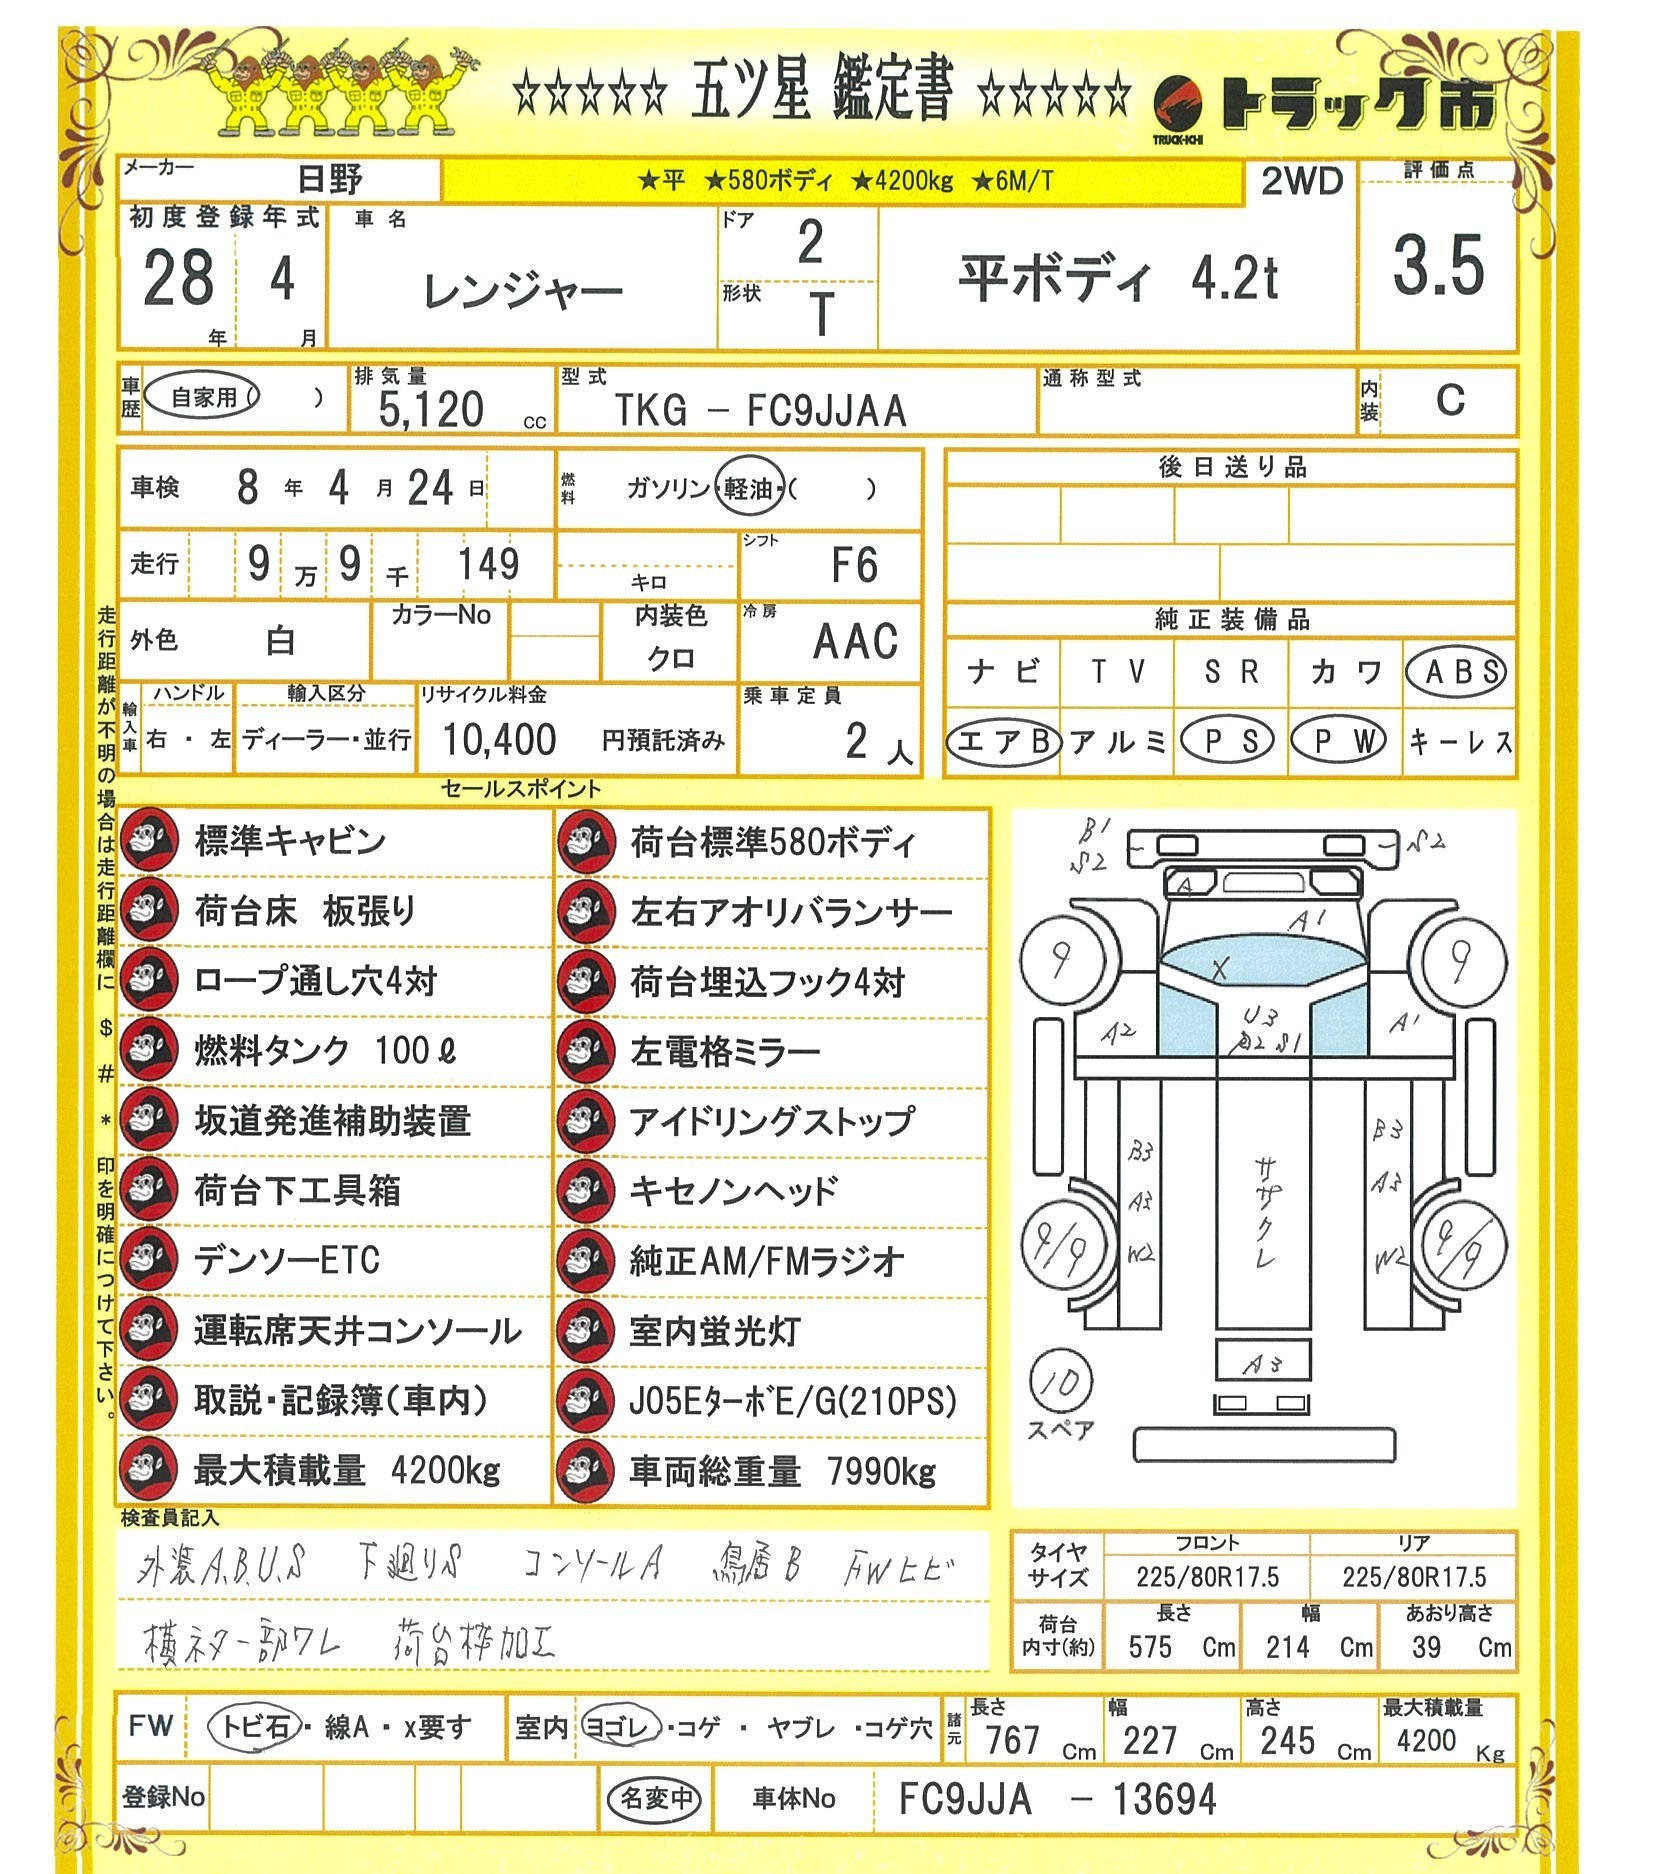 ☆☆☆☆☆ 五ツ星 鑑定書 ☆☆☆☆☆
TRUCK-ICHI トラック市
メーカー 日野 ★平 ★580ボディ ★4200kg ★6M/T 2WD 評価点
初度登録年式 車名 ドア 2
28年 4月 レンジャー 形状 T 平ボディ 4.2t 3.5
車歴 自家用( ) 排気量 5,120 cc 型式 TKG － FC9JJAA 通称型式 内装 C
車検 8年 4月 24日 燃料 ガソリン・軽油・( ) 後日送り品
走行 9万 9千 149 キロ シフト F6
外色 白 カラーNo 内装色 クロ 冷房 AAC 純正装備品
ナビ TV SR カワ ABS
輸入車 ハンドル 輸入区分 リサイクル料金 乗車定員
右・左 ディーラー・並行 10,400 円預託済み 2人 エアB アルミ PS PW キーレス
走行距離が不明の場合は走行距離欄に $ # * 印を明確につけて下さい。
セールスポイント
標準キャビン 荷台標準580ボディ
荷台床 板張り 左右アオリバランサー
ロープ通し穴4対 荷台埋込フック4対
燃料タンク 100ℓ 左電格ミラー
坂道発進補助装置 アイドリングストップ
荷台下工具箱 キセノンヘッド
デンソーETC 純正AM/FMラジオ
運転席天井コンソール 室内蛍光灯
取説・記録簿(車内) J05EﾀｰﾎﾞE/G(210PS)
最大積載量 4200kg 車両総重量 7990kg
B1
S2 S2
A
A1
9 9
X
U3
A2 S1
A2 A1
B3 B3
A3 ササクレ A3
W2 W2
9/9 9/9
A3
10
スペア
検査員記入
外装A.B.U.S 下廻りS コンソールA 鳥居B FWヒビ
横ネター部ワレ 荷台枠加工
タイヤサイズ フロント リア
225/80R17.5 225/80R17.5
荷台内寸(約) 長さ 幅 あおり高さ
575 Cm 214 Cm 39 Cm
FW トビ石・線A・x要す 室内 ヨゴレ・コゲ・ヤブレ・コゲ穴
諸元 長さ 幅 高さ 最大積載量
767 Cm 227 Cm 245 Cm 4200 Kg
登録No 名変中 車体No FC9JJA － 13694